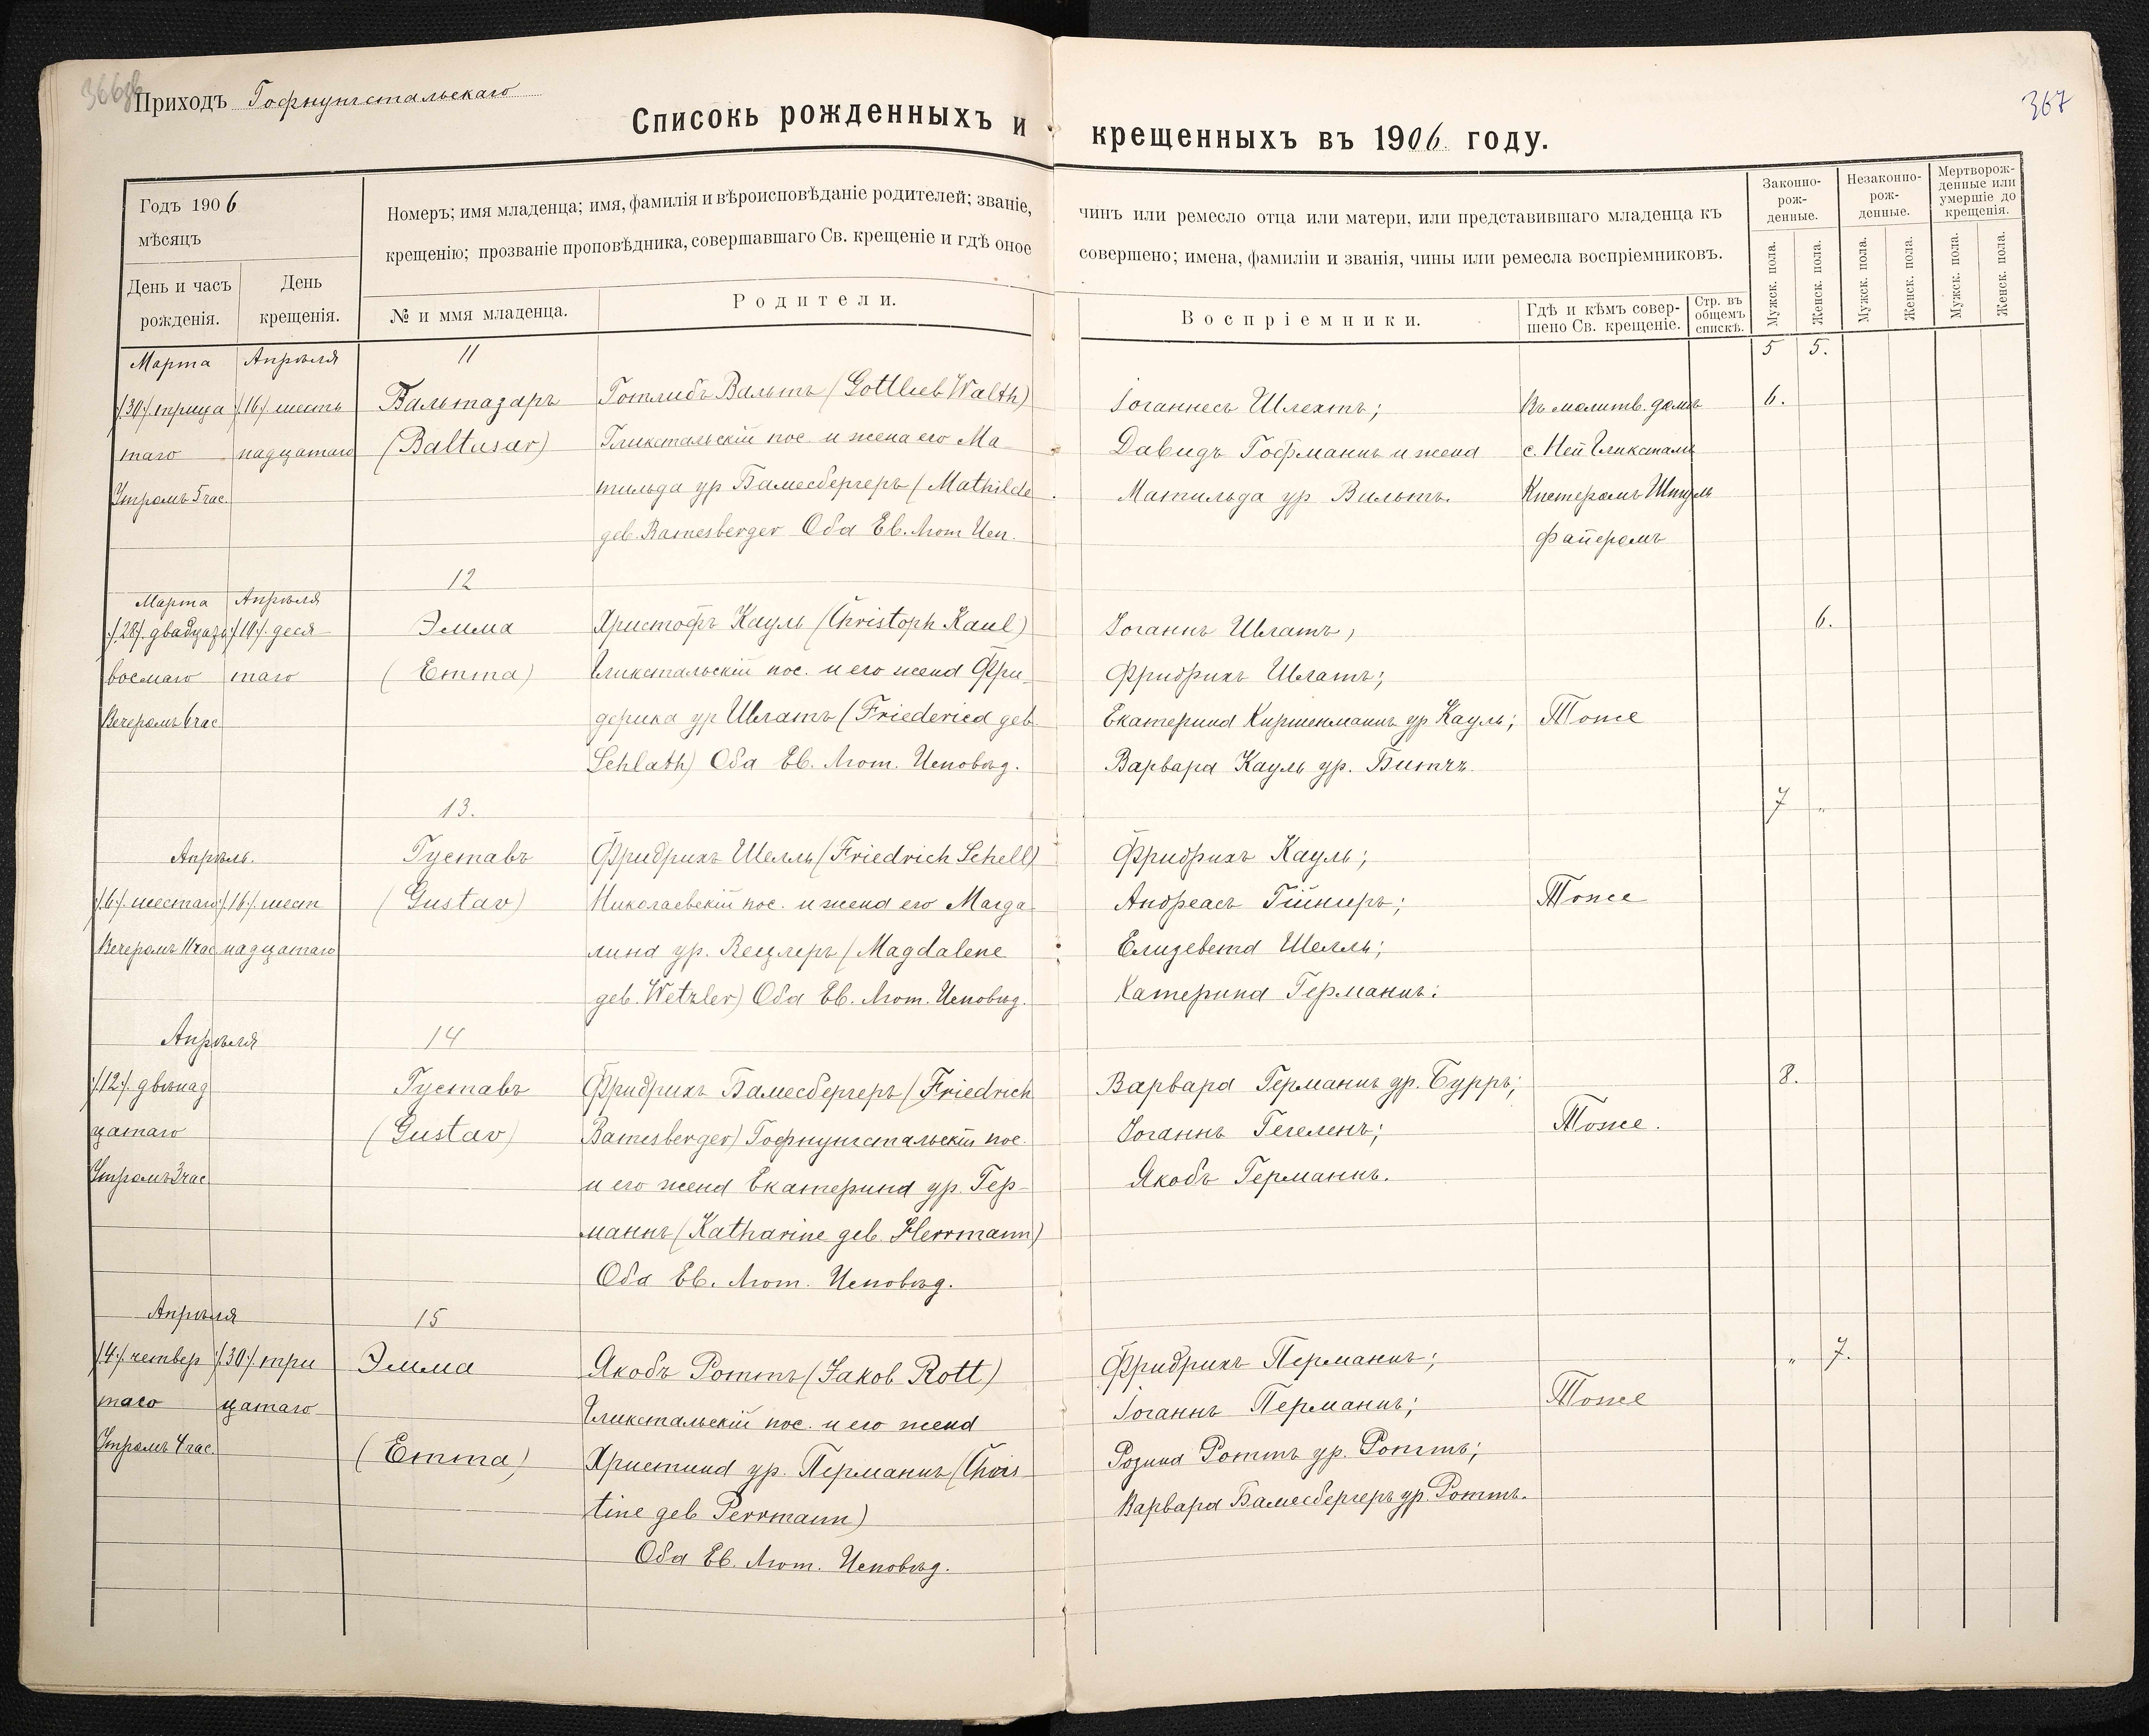 366об
Приходъ Гофнунгстальскаго
367
Списокь рожденныхъ и крещенныхъ въ 1906 году.
Годъ 1906
мѣсяцъ
День и часъ рожденія.
День крещенія.
Номеръ; имя младенца; имя, фамилія и вѣроисповѣданіе родителей; званіе, чинъ или ремесло отца или матери, или представившаго младенца къ
крещенію; прозваніе проповѣдника, совершавшаго Св. крещеніе и гдѣ оное совершено; имена, фамиліи и званія, чины или ремесла воспріемниковъ.
№ и ммя младенца.
Родители.
Воспріемники.
Гдѣ и кѣмъ совер-
шено Св. крещеніе.
Стр. въ
общемъ
спискѣ.
Законно-
рож-
денные.
Незаконно-
рож-
денные.
Мертворож-
денные или
умершіе до
крещенія.
Мужск. пола.
Женск. пола.
Мужск. пола.
Женск. пола.
Мужск. пола.
Женск. пола.
5 5.
Марта
/30/ трица
таго
Утромъ 5 час.
Апрѣля
/16/ шесть
надцатаго
11
Бальтазаръ
(Baltusar)
Готлибъ Вальтъ (Gottlieb Walth)
Гликстальскій пос. и жена его Ма-
тильда ур Бамесбергеръ (Mathilde
geb. Bamesberger Оба Ев. Лют Исп.
Іоганнесъ Шлехтъ;
Давидъ Гофманнъ и жена
Матильда ур Вильтъ.
Въ молитв. домѣ
с. Ней Гликсталь
Кистеромъ Штум
файеромъ
6.
Марта
/28/. двадцать
восмаго
Вечеромъ 6 час
Апрѣля
/10/. деся-
таго
12
Эмма
(Emma)
Христофъ Кауль (Christoph Kaul)
Гликстальскій пос. и его жена Фри-
дерика ур Шлатъ (Friederica geb.
Schlath) Оба Ев. Лют. Исповѣд.
Іоганнъ Шлатъ,
Фридрихъ Шлатъ;
Екатерина Киршенманнъ ур Кауль;
Варвара Кауль ур. Битчъ.
Тоже
6.
13.
7 "
Апрѣль.
/.6/. шестаго
Вечеромъ 11 час
/.16/. шест
надцатаго
Густавъ
(Gustav)
Фридрихъ Шелль (Friedrich Schell)
Николаевскій пос. и жена его Магда-
лина ур. Вецлеръ (Magdalene
geb. Wetzler) Оба Ев. Лют. Исповѣд.
Фридрихъ Кауль;
Андреасъ Гейнгеръ;
Елизевета Шелль;
Катерина Германнъ:
Тоже
Апрѣля
/.12/. двѣнад
цатаго
Утромъ 3 час
14
Густавъ
(Gustav)
Фридрихъ Бамесбергеръ (Friedrich
Bamesberger) Гофнунгстальскій пос.
и его жена Екатерина ур. Гер-
маннъ (Katharine geb. Herrmann)
Оба Ев. Лют. Исповѣд.
Варвара Германнъ ур. Бурръ;
Іоганнъ Гегеленъ;
Якобъ Германнъ.
Тоже.
8.
Апрѣля
/4/ четвер
таго
Утромъ 4 час.
/.30/. три
цатаго
15
Эмма
(Emma)
Якобъ Роттъ (Jakob Rott)
Гликстальскій пос. и его жена
Христина ур. Перманнъ (Chris-
tine geb Perrmann)
Оба Ев. Лют. Исповѣд.
Фридрихъ Перманнъ;
Іоганнъ Перманнъ;
Розина Роттъ ур. Роттъ;
Варвара Бамесбергеръ ур. Роттъ.
Тоже
" 7.